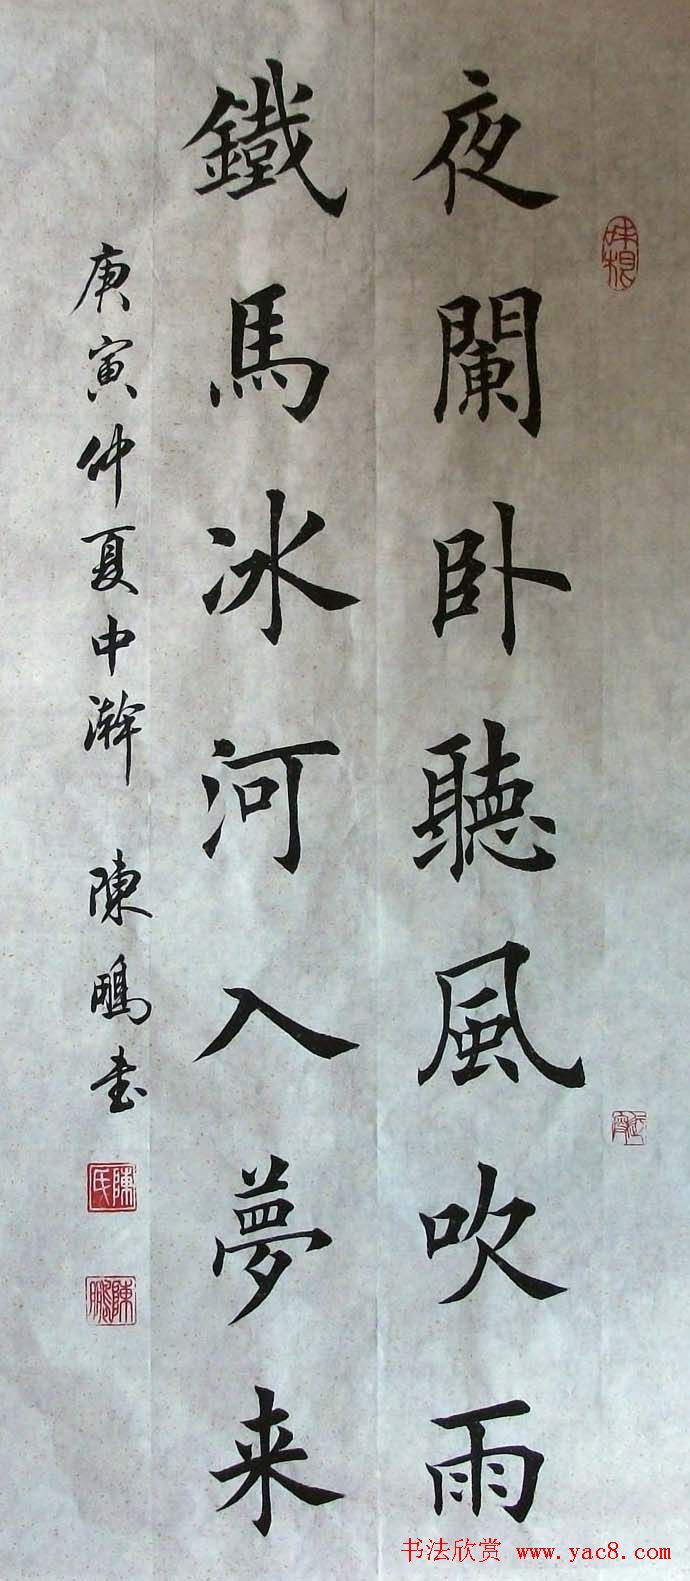 夜闌卧聽風吹雨
鐵馬冰河入夢来
庚寅仲夏中瀚 陳鵬书
陳氏
陳鵬
书法欣赏 www.yac8.com